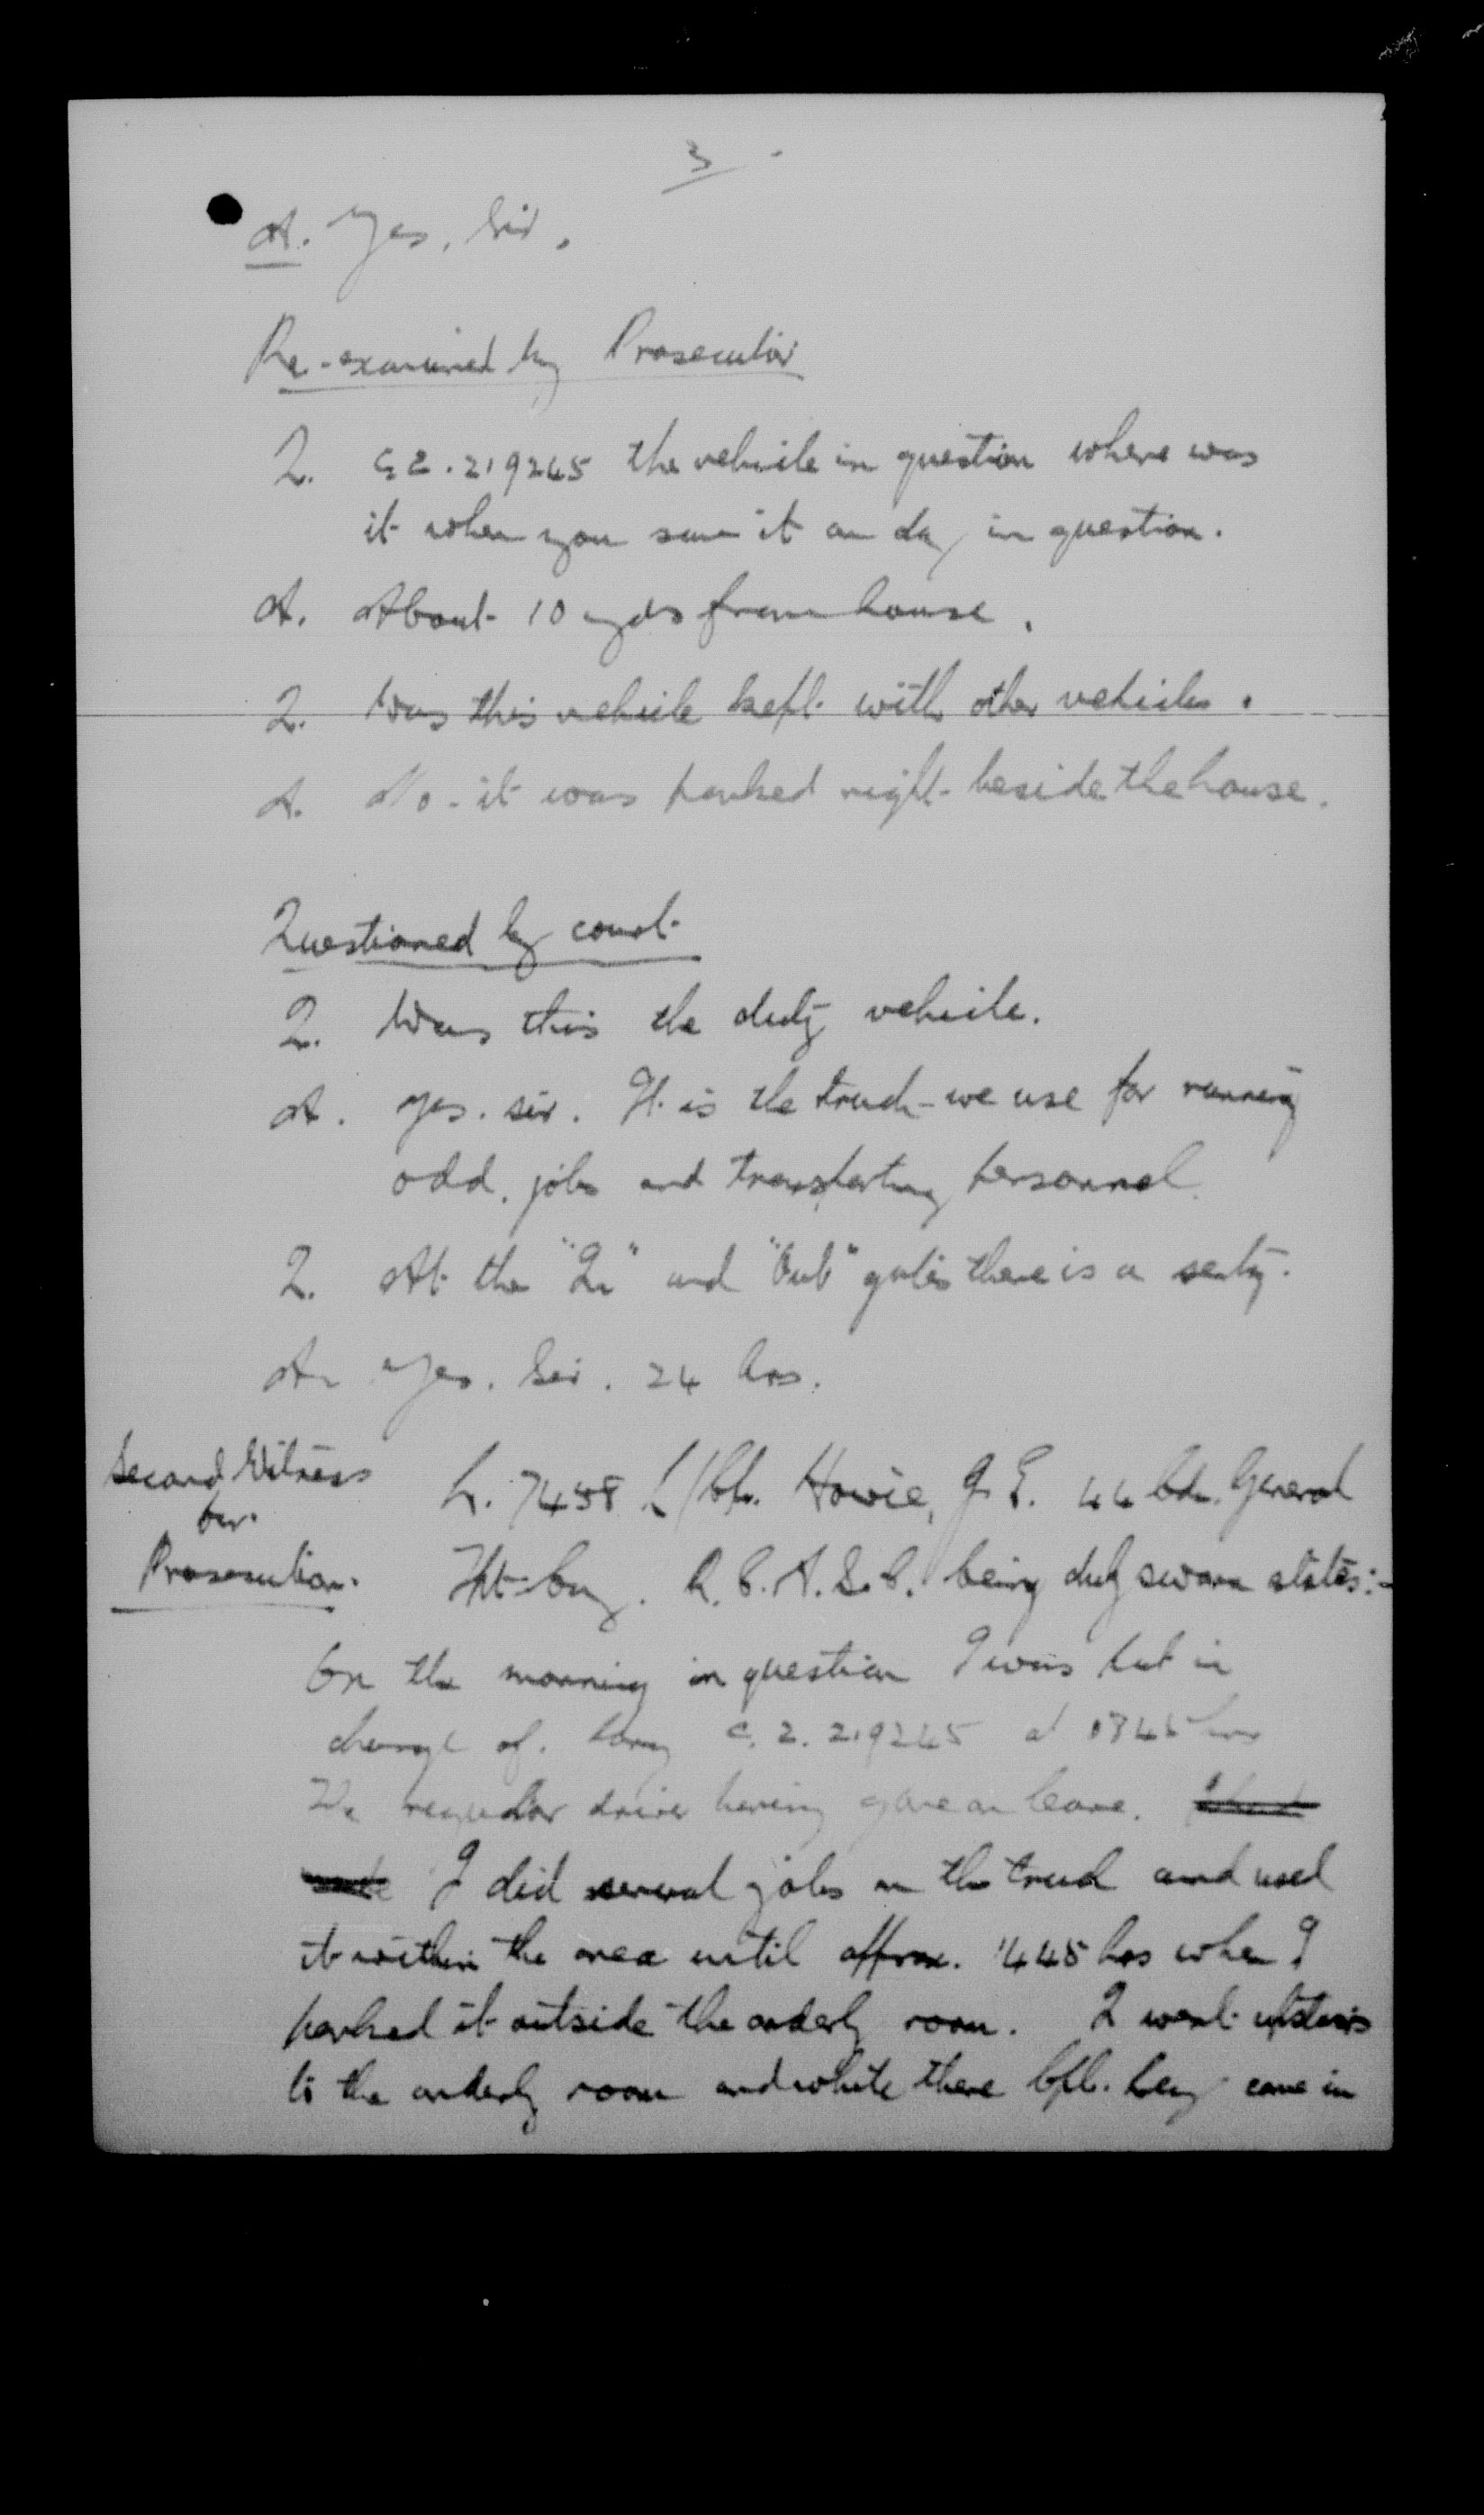 3
A. Yes, Sir.
Re-examined by Prosecutor
Q. CZ. 219245 the vehicle in question where was
it when you saw it on day in question.
A. About 10 yds from house.
Q. Was this vehicle kept with other vehicles.
A. No - it was parked right beside the house.
Questioned by court
Q. Was this the duty vehicle.
A. Yes. sir. It is the truck we use for running
odd. jobs and transporting personnel
Q. At the "In" and "Out" gates there is a sentry.
A. Yes. Sir. 24 hrs.
Second Witness
for
Prosecution.
L/Cpl. Howie, J. E. General
R.C.A.S.C. being duly sworn states:-
On the morning in question I was put in
charge of. lorry C.Z. 219245 at hrs
The regular driver having gone on leave.
I did several jobs on the truck and used
it within the area until approx. 1445 hrs when I
parked it outside the orderly room. I went upstairs
to the orderly room and while there Cpl. came in